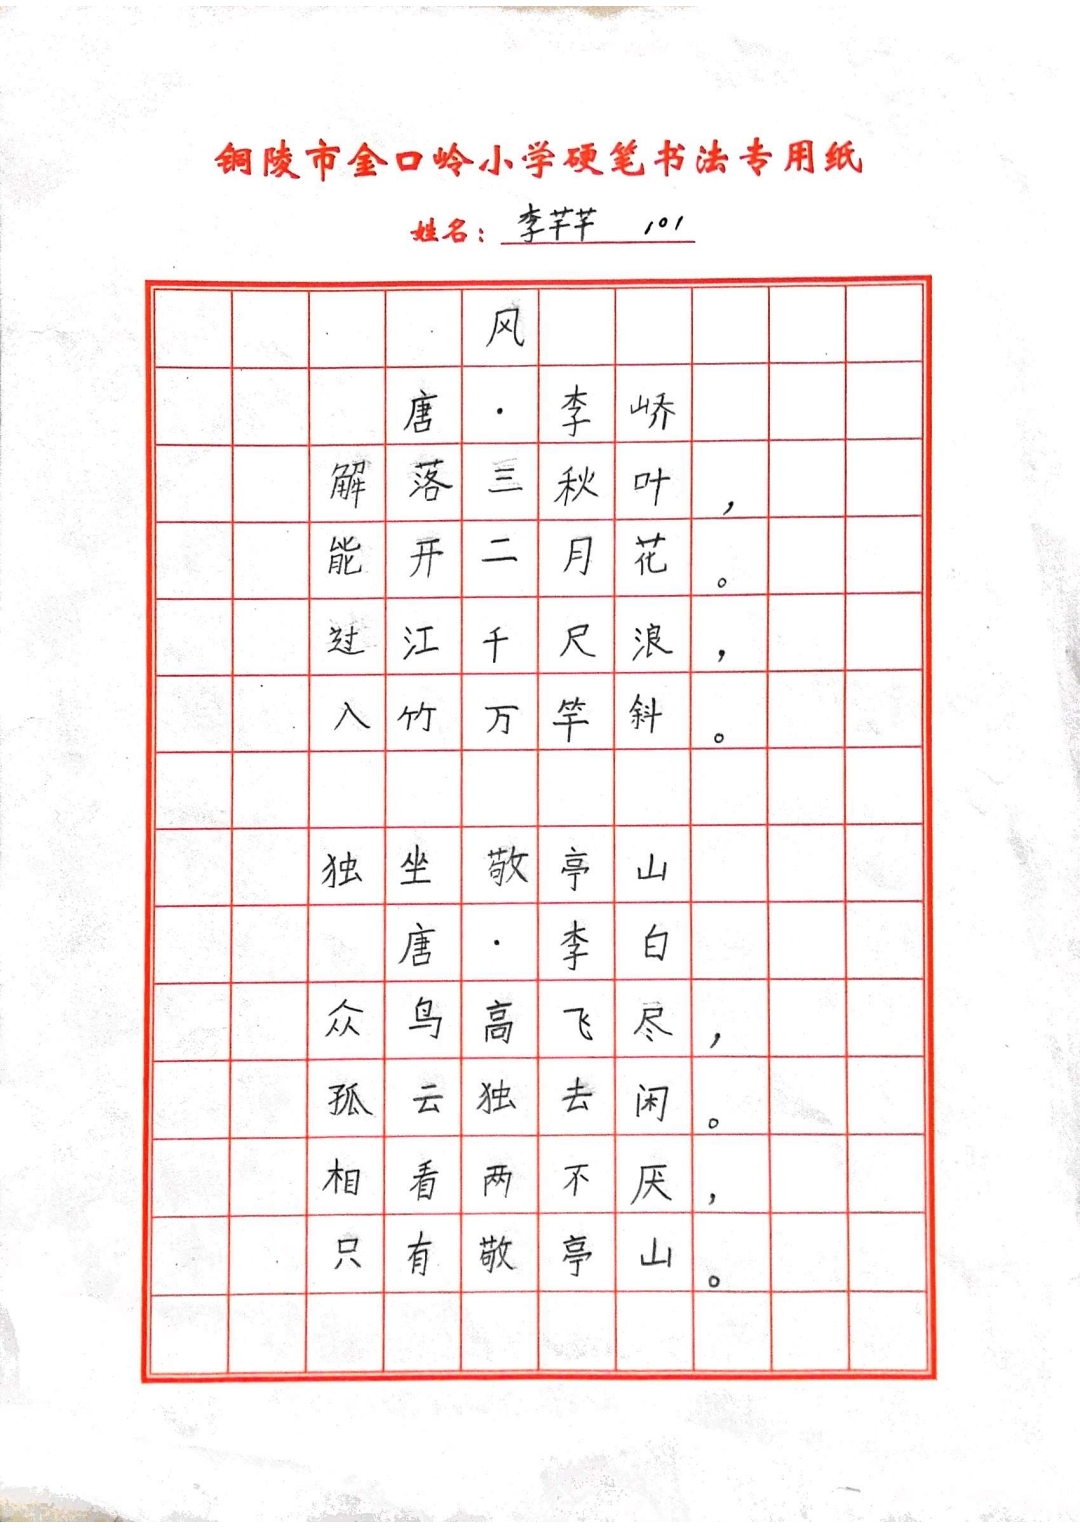 铜陵市金口岭小学硬笔书法专用纸
姓名：李芊芊 101
风
唐·李峤
解落三秋叶，
能开二月花。
过江千尺浪，
入竹万竿斜。
独坐敬亭山
唐·李白
众鸟高飞尽，
孤云独去闲。
相看两不厌，
只有敬亭山。